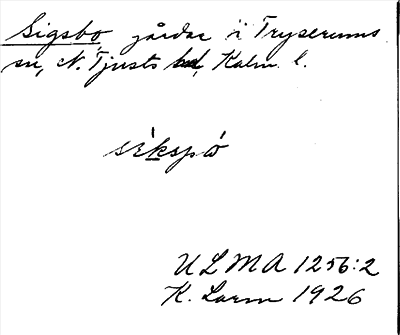 Sigsbo, gårdar i Tryserums
sn, N. Tjusts hd, Kalm. l.
sìkspò
ULMA 1256:2
K. Larm 1926